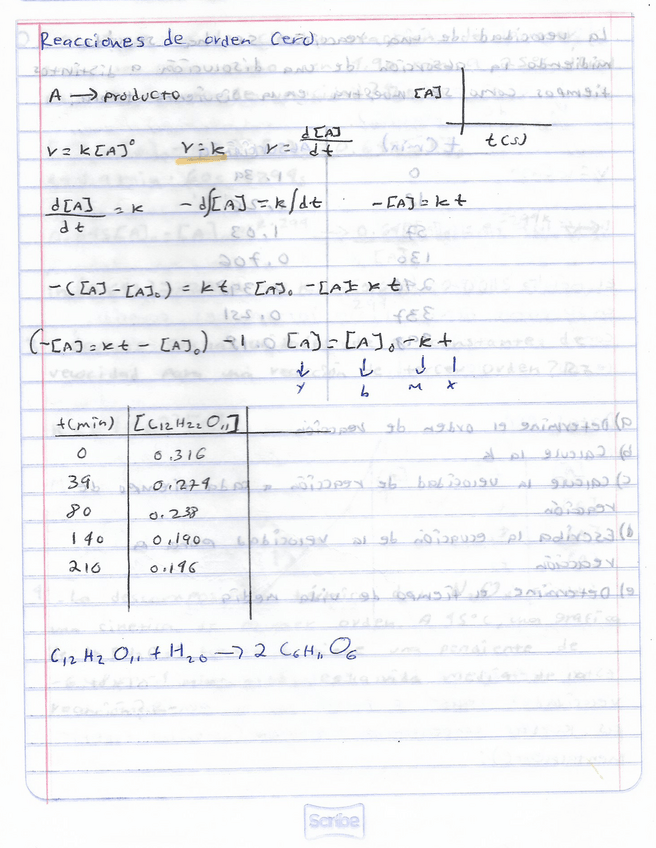 Reacciones de orden Cero
A → producto [A] t(s)
v = k[A]° v = k v = d[A]/dt
d[A]/dt = k -d∫[A] = k∫dt -[A] = kt
-([A] - [A]₀) = kt [A]₀ - [A] = kt
(-[A] = kt - [A]₀) -1 [A] = [A]₀ - kt
↓ ↓ ↓ |
y b M x
t(min) [C12H22O11]
0 0.316
39 0.274
80 0.238
140 0.190
210 0.146
C12H2O11 + H2O → 2 C6H11O6
Scribe